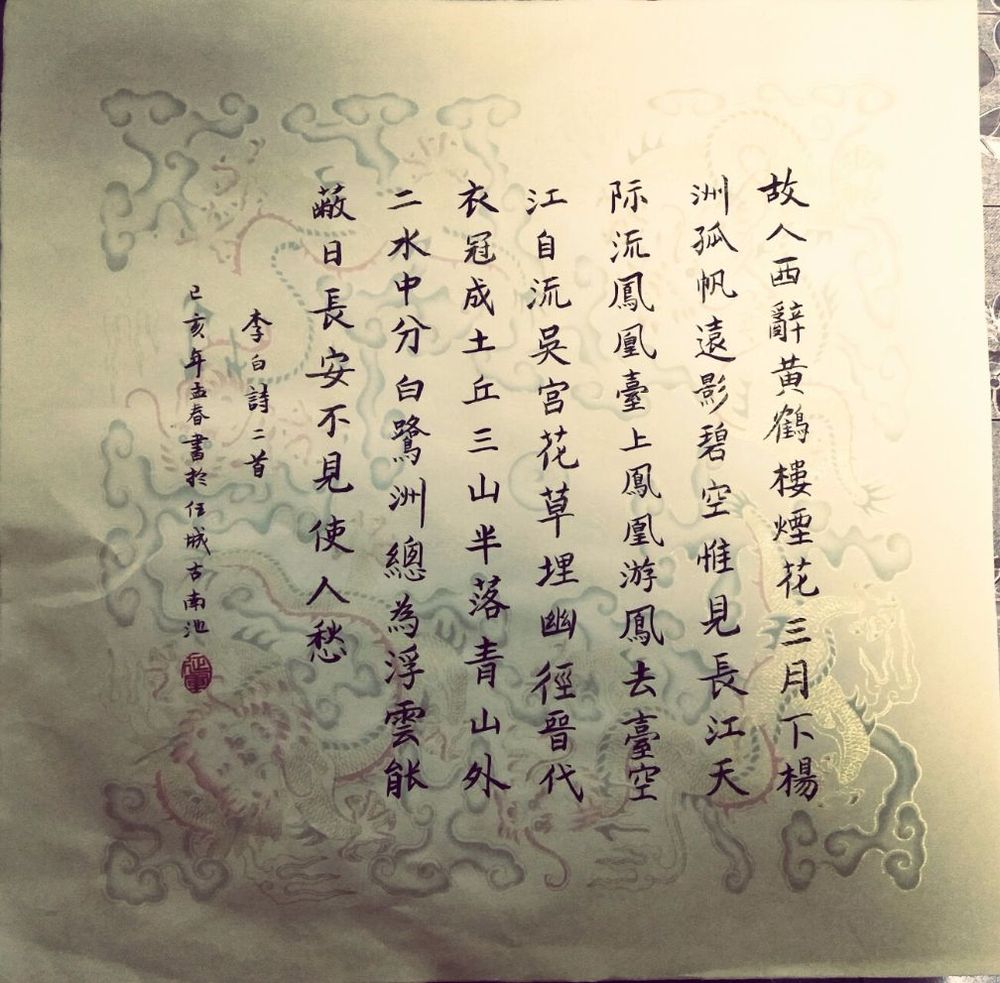 故人西辭黃鶴樓煙花三月下楊
洲孤帆遠影碧空惟見長江天
际流鳳凰臺上鳳凰游鳳去臺空
江自流吳宮花草埋幽徑晉代
衣冠成土丘三山半落青山外
二水中分白鷺洲總為浮雲能
蔽日長安不見使人愁
李白詩二首
己亥年孟春書於任城古南池